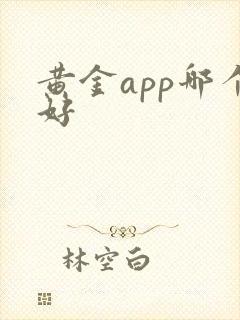 黄金app哪个
好
林空白